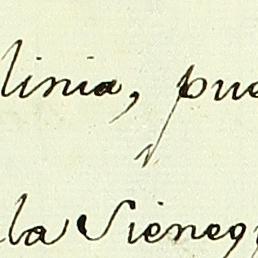 linia, pue
la Sieneg